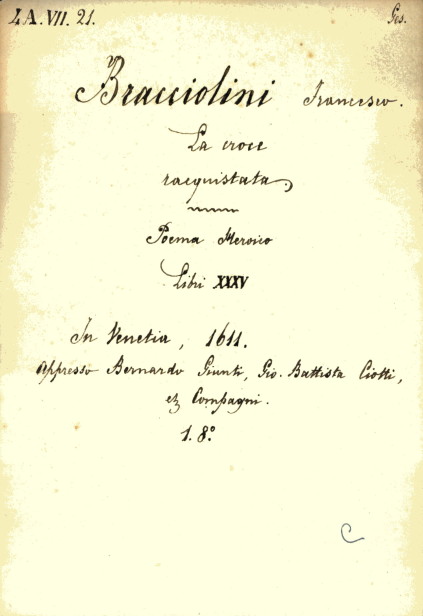 4A.VII.21. Ges.
Bracciolini Francesco.
La croce
racquistata.
Poema Heroico
Libri XXXV
In Venetia, 1611.
Appresso Bernardo Giunti, Gio. Battista Ciotti,
et Compagni.
1. 8.º
C